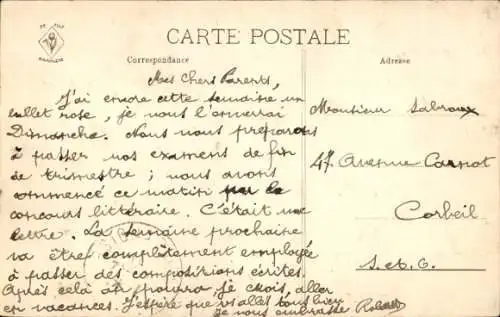 CARTE POSTALE
Correspondance
Adresse
Mes chers Parents,
J'ai encore cette semaine un
billet rose, je vous l'enverrai
Dimanche. Nous nous préparons
à passer nos examens de fin
de trimestre ; nous avons
commencé ce matin par le
concours littéraire. C'était une
lettre. La semaine prochaine
va être complètement employée
à passer des compositions écrites.
Après cela on pourra, je crois, aller
en vacances. J'espère que vs allez tous bien
Je vous embrasse Robert
Monsieur
47 Avenue Carnot
Corbeil
S. et O.